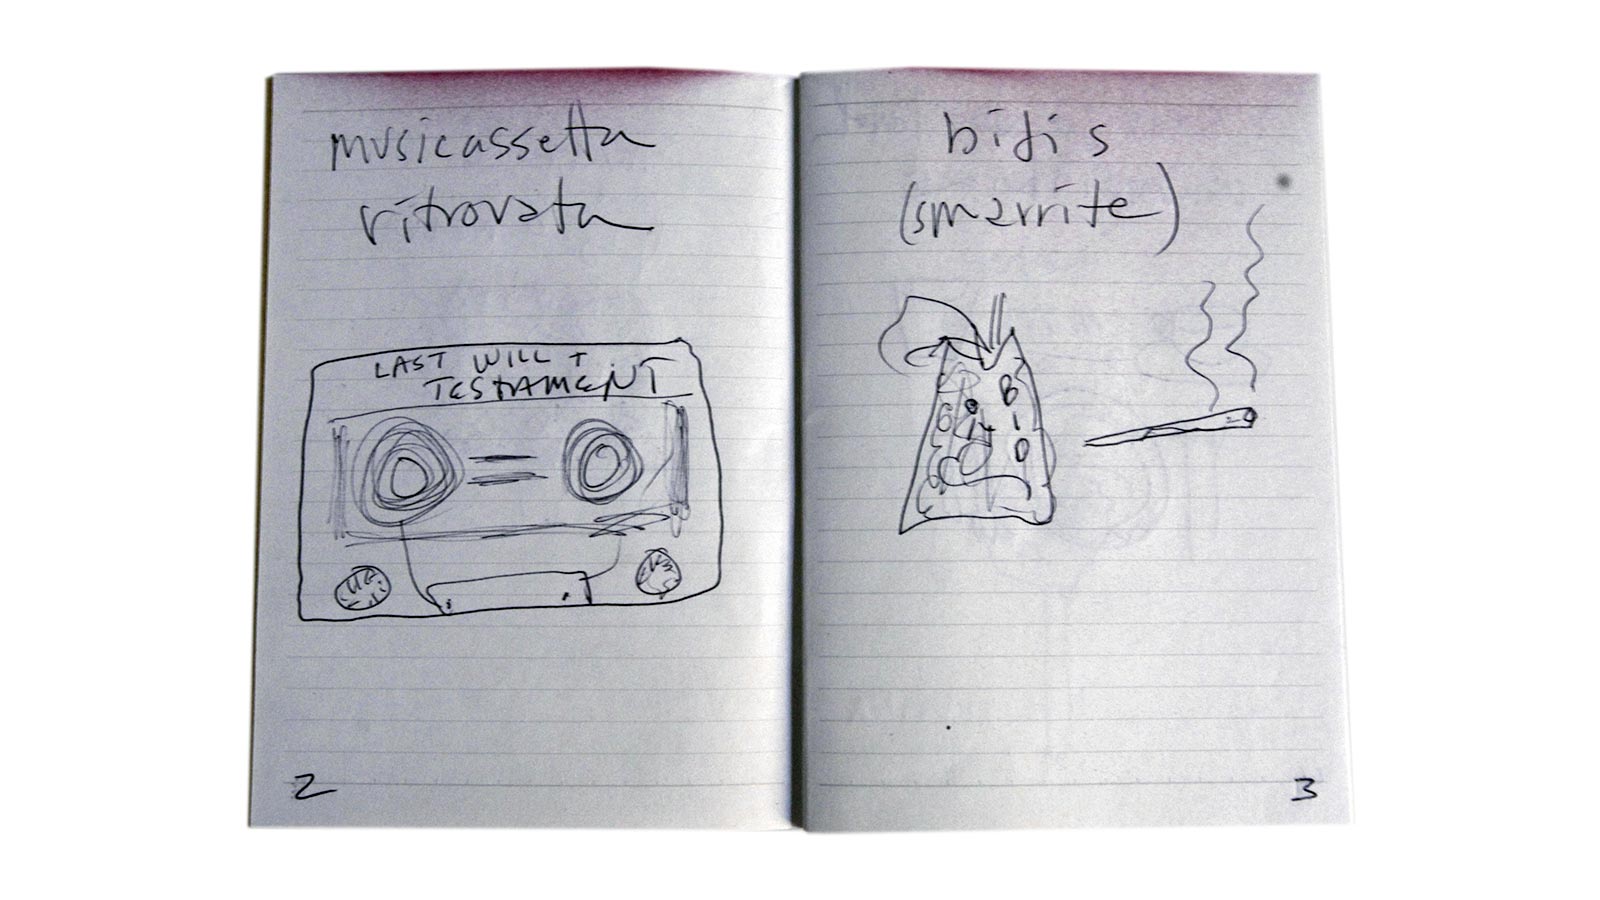 musicassetta
ritrovata
LAST WILL +
TESTAMENT
2
bidis
(smarrite)
B
I
O
3